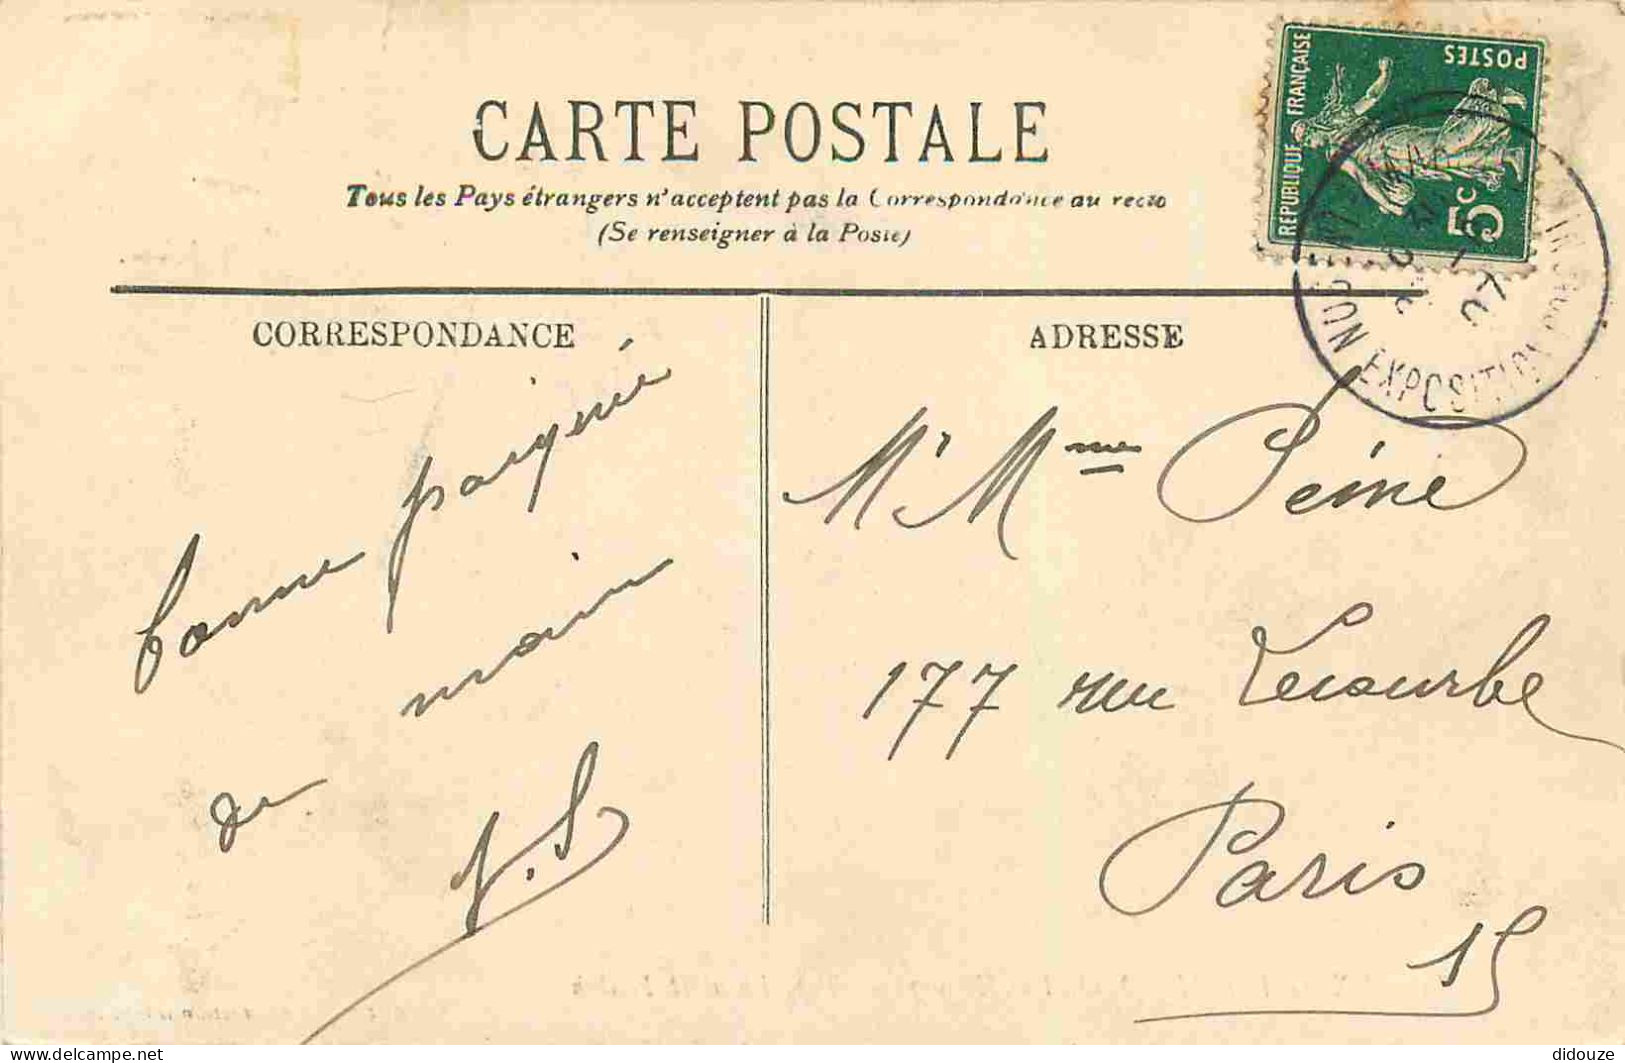 CARTE POSTALE
Tous les Pays étrangers n'acceptent pas la Correspondance au recto
(Se renseigner à la Poste)
REPUBLIQUE FRANÇAISE
POSTES
5c
EXPOSITION
07
CORRESPONDANCE
bonne poignée
de main
J.S
ADRESSE
Mr Mme Peine
177 rue Lecourbe
Paris
15
didouze